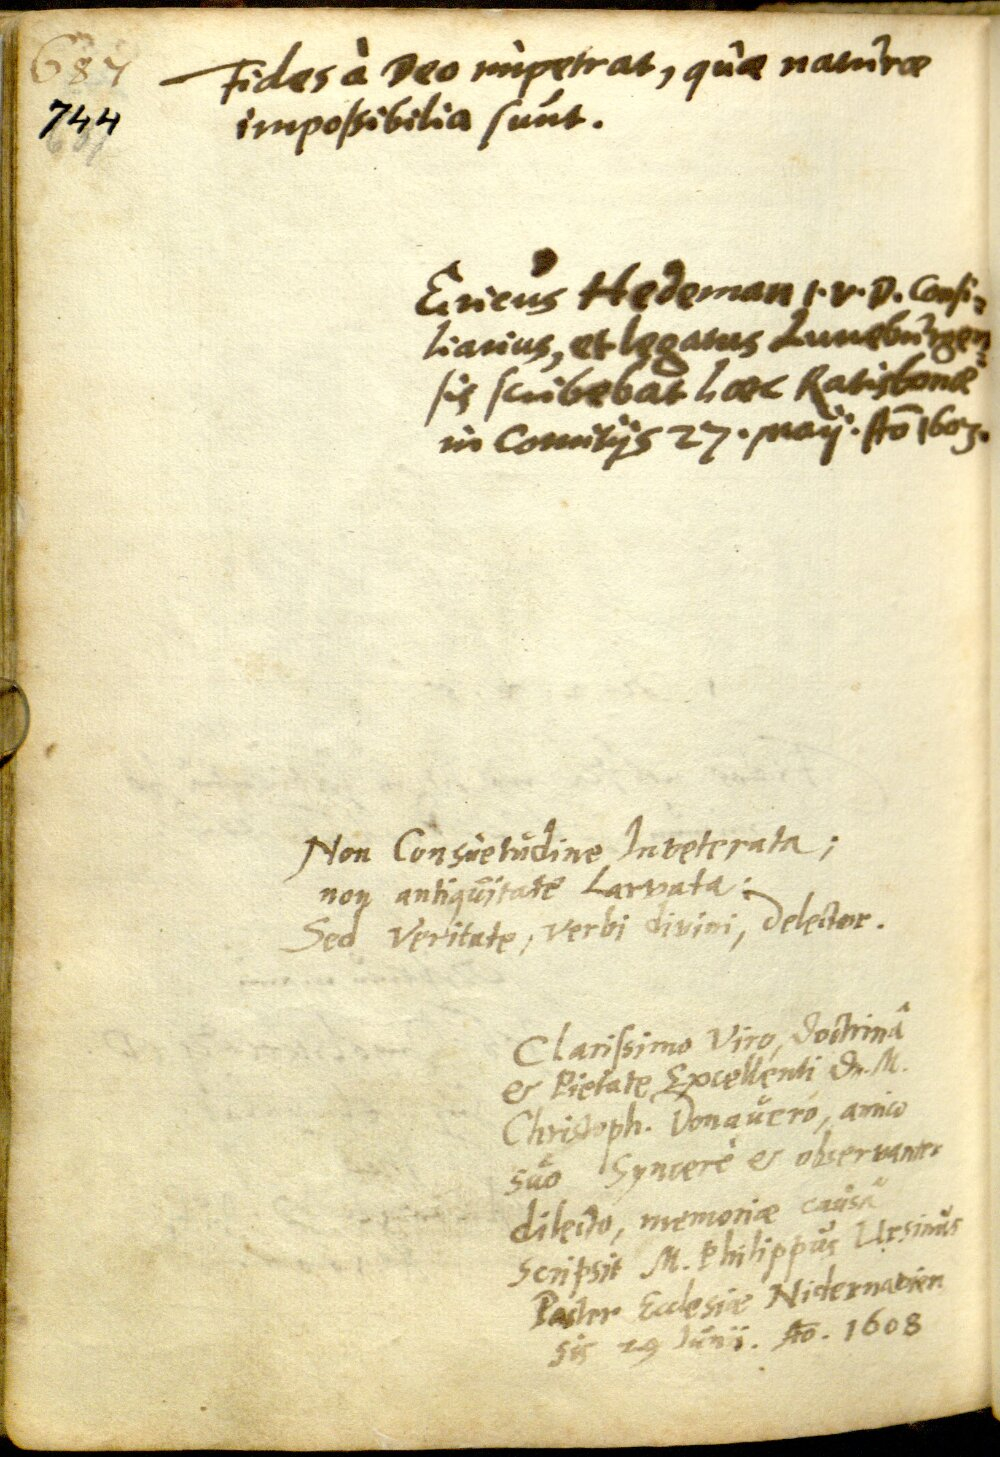 687
744
Fides à Deo impetrat, quæ naturæ
impossibilia sunt.
Ericus Hedeman I. V. D. Consi-
liarius, et legatus Luneburgen-
sis scribebat hæc Ratisbonæ
in Comitijs 27. Maij. Aō 1603.
Non Consuetudine Inveterata;
non antiquitate Larvata;
Sed Veritate, Verbi divini, Delector.
Clarissimo Viro, doctrinâ
& Pietate Excellenti Dn. M.
Christoph. Donavero, amico
suo Syncerè & observanter
dilecto, memoriæ causâ
scripsit M. Philippus Ursinus
Pastor Ecclesiæ
sis 29 Junii. Aō. 1608